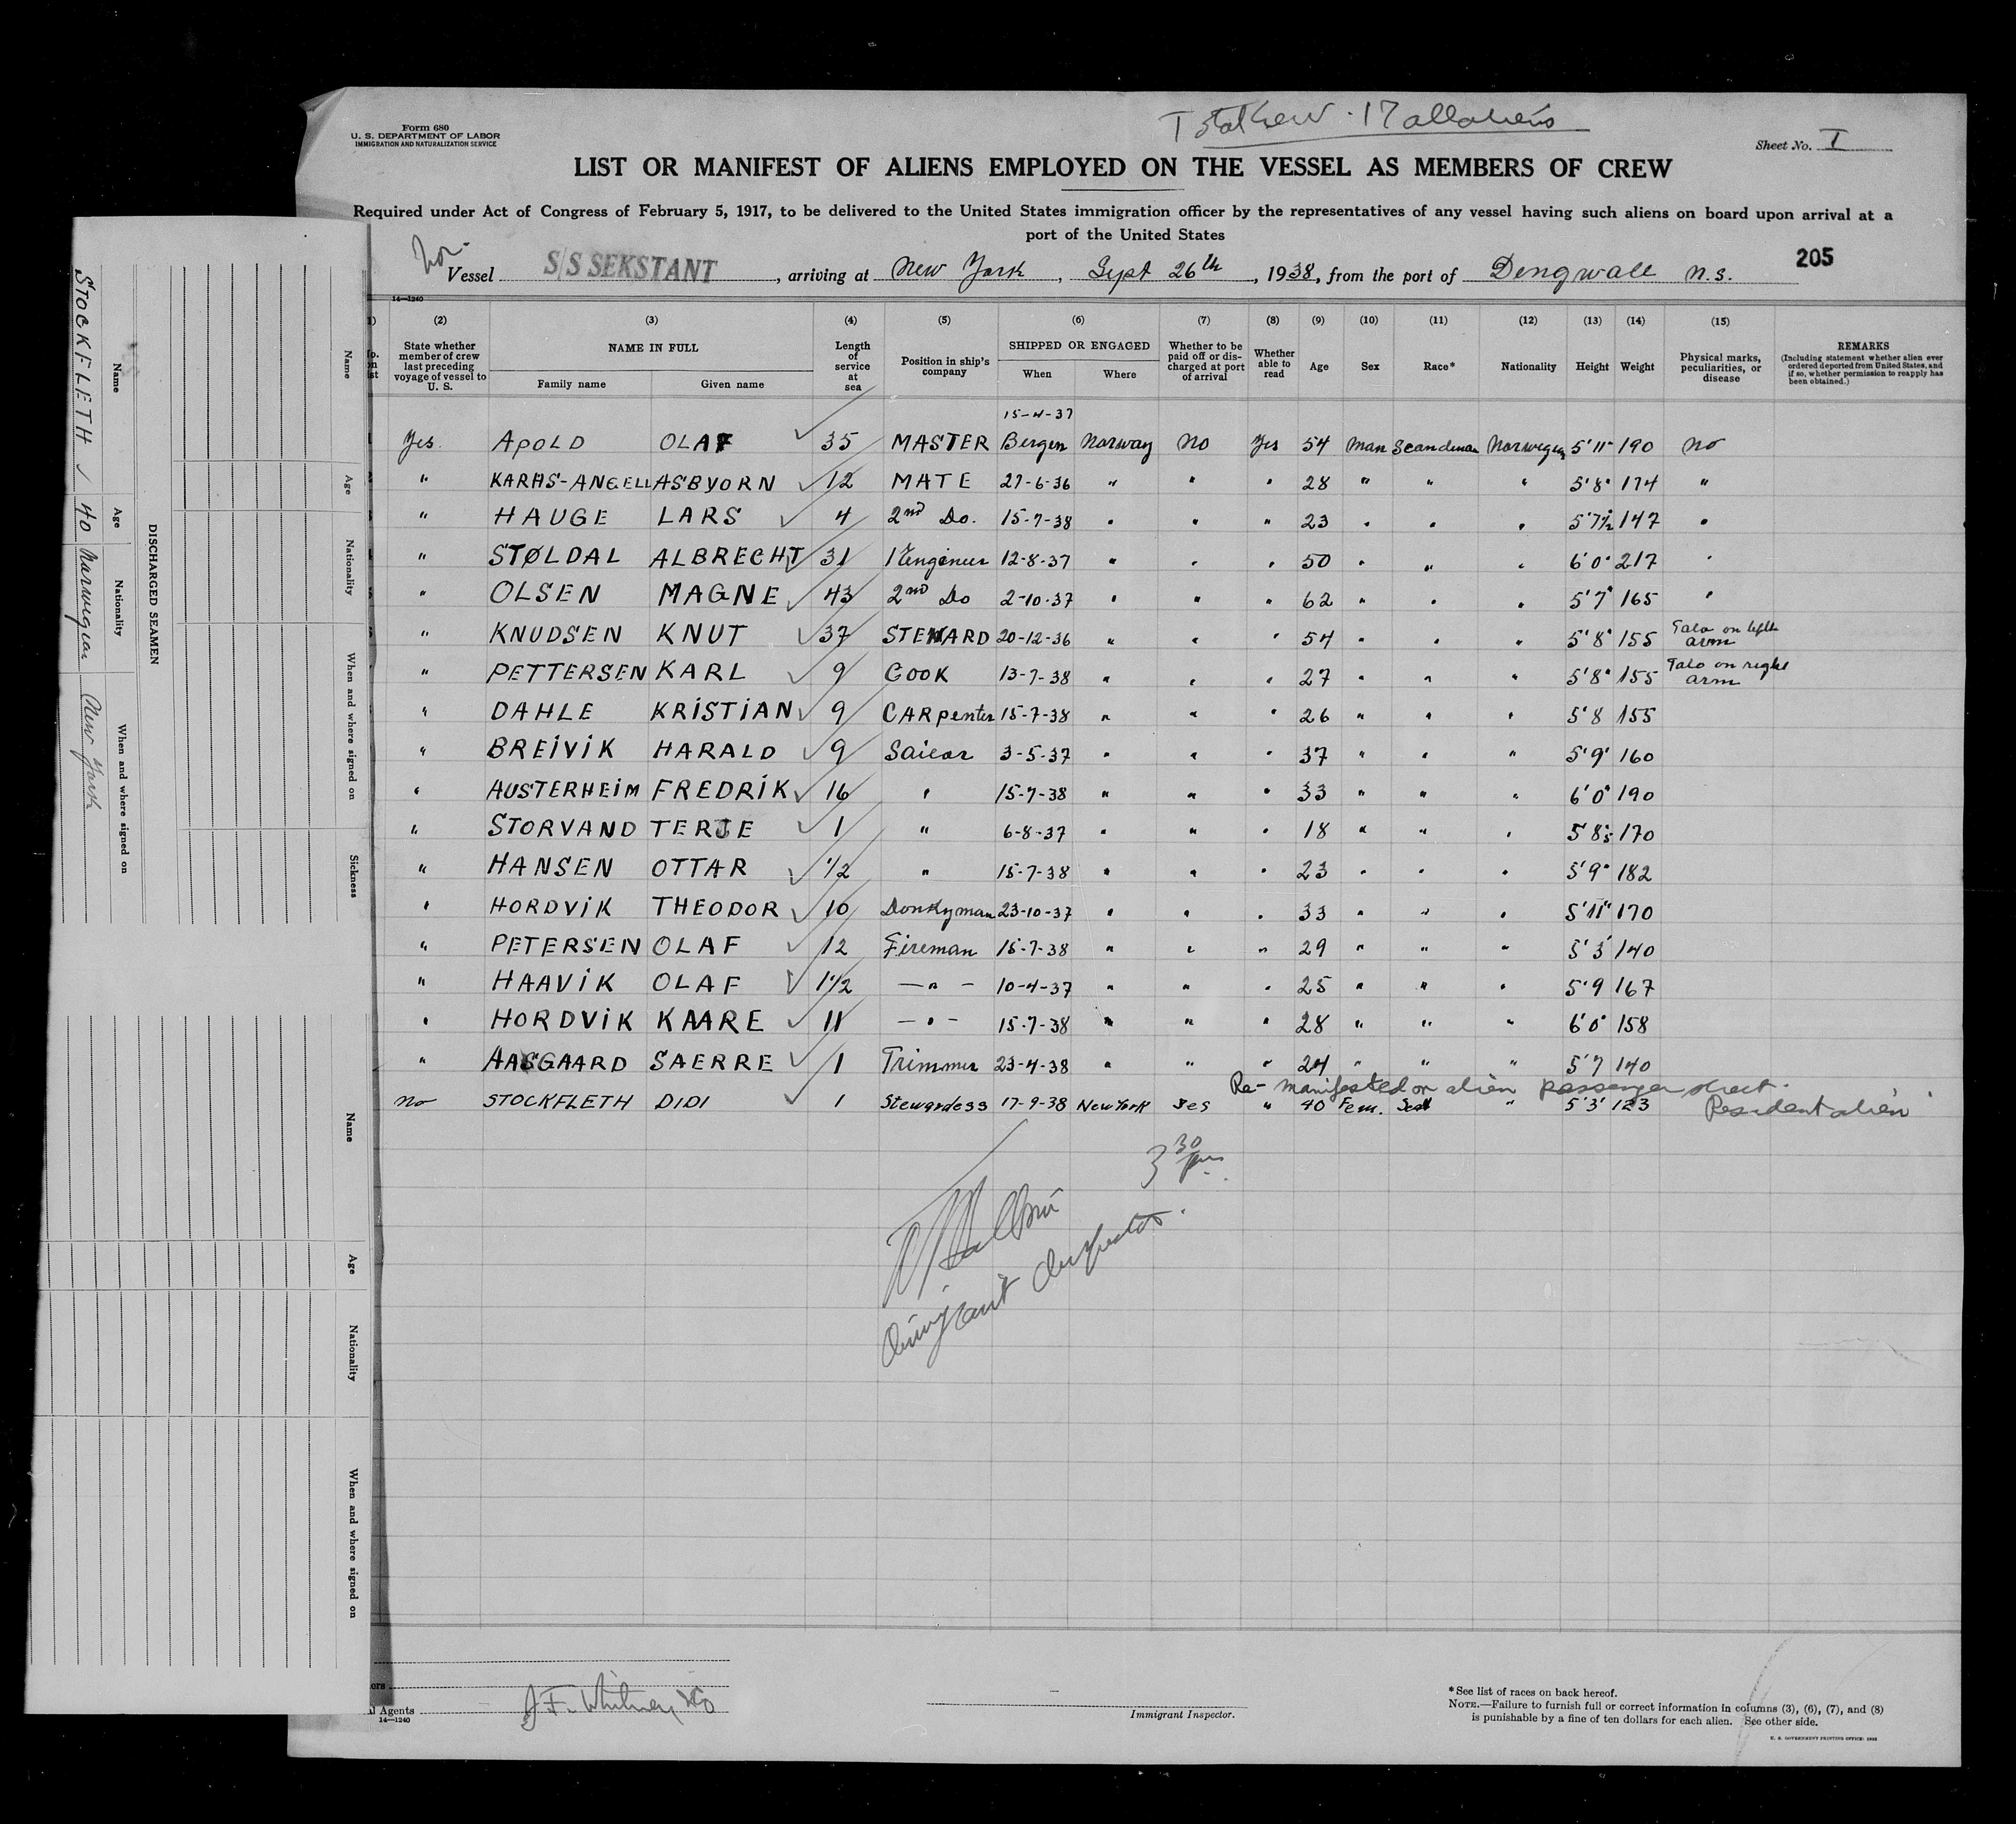 Form 680
U. S. DEPARTMENT OF LABOR
IMMIGRATION AND NATURALIZATION SERVICE
Total Crew . 17 all aliens
Sheet No. I
LIST OR MANIFEST OF ALIENS EMPLOYED ON THE VESSEL AS MEMBERS OF CREW
Required under Act of Congress of February 5, 1917, to be delivered to the United States immigration officer by the representatives of any vessel having such aliens on board upon arrival at a
port of the United States
205
Nor.
Vessel S/S SEKSTANT, arriving at New York, Sept 26th, 1938, from the port of Dengwall N.S.
14—1240
(2) (3) (4) (5) (6) (7) (8) (9) (10) (11) (12) (13) (14) (15)
State whether member of crew last preceding voyage of vessel to U. S.
NAME IN FULL
Family name
Given name
Length of service at sea
Position in ship's company
SHIPPED OR ENGAGED
When
Where
Whether to be paid off or discharged at port of arrival
Whether able to read
Age
Sex
Race*
Nationality
Height
Weight
Physical marks, peculiarities, or disease
REMARKS
(Including statement whether alien ever ordered deported from United States, and if so, whether permission to reapply has been obtained.)
15-4-37
Yes APOLD OLAF ✓ 35 MASTER Bergen Norway No Yes 54 Man Scandinav Norwegian 5'11" 190 No
" KARHS-ANGELL ASBYORN ✓ 12 MATE 27-6-36 " " " 28 " " " 5'8" 174 "
" HAUGE LARS ✓ 4 2nd Do. 15-7-38 " " " 23 " " " 5'7½ 147 "
" STØLDAL ALBRECHT ✓ 31 1 Engineer 12-8-37 " " " 50 " " " 6'0" 217 "
" OLSEN MAGNE ✓ 43 2nd Do 2-10-37 " " " 62 " " " 5'7" 165 "
" KNUDSEN KNUT ✓ 37 STEWARD 20-12-36 " " " 54 " " " 5'8" 155 Tato on left arm
" PETTERSEN KARL ✓ 9 COOK 13-7-38 " " " 27 " " " 5'8" 155 Tato on right arm
" DAHLE KRISTIAN ✓ 9 CARpenter 15-7-38 " " " 26 " " " 5'8 155
" BREIVIK HARALD ✓ 9 Sailor 3-5-37 " " " 37 " " " 5'9' 160
" AUSTERHEIM FREDRIK ✓ 16 " 15-7-38 " " " 33 " " " 6'0" 190
" STORVAND TERJE ✓ 1 " 6-8-37 " " " 18 " " " 5'8½ 170
" HANSEN OTTAR ✓ 1/2 " 15-7-38 " " " 23 " " " 5'9" 182
" HORDVIK THEODOR ✓ 10 Donkyman 23-10-37 " " " 33 " " " 5'11" 170
" PETERSEN OLAF ✓ 12 Fireman 15-7-38 " " " 29 " " " 5'3' 140
" HAAVIK OLAF ✓ 1 1/2 — " — 10-4-37 " " " 25 " " " 5'9 167
" HORDVIK KAARE ✓ 11 — " — 15-7-38 " " " 28 " " " 6'0" 158
" AASGAARD SAERRE ✓ 1 Trimmer 23-4-38 " " " 24 " " " 5'7 140
Re-manifested on alien passenger sheet.
No STOCKFLETH DIDI ✓ 1 Stewardess 17-9-38 New York Yes " 40 Fem. Scan " 5'3' 123 Resident alien
3 30 pm
Immigrant Inspector.
J. F. Whitney & Co
l Agents
14—1240
Immigrant Inspector.
*See list of races on back hereof.
NOTE.—Failure to furnish full or correct information in columns (3), (6), (7), and (8)
is punishable by a fine of ten dollars for each alien. See other side.
U. S. GOVERNMENT PRINTING OFFICE: 1932
DISCHARGED SEAMEN
Name
Age
Nationality
When and where signed on
STOCKFLETH ✓ 40 Norwegian New York
Name
Age
Nationality
When and where signed on
Sickness
Name
Age
Nationality
When and where signed on